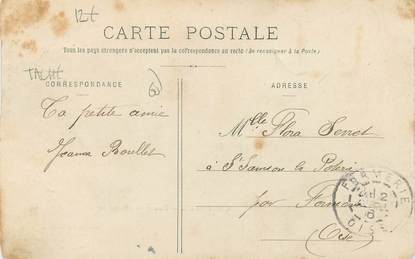 12€
CARTE POSTALE
Tous les pays étrangers n'acceptent pas la correspondance au recto (Se renseigner à la Poste)
TACHÉ
CORRESPONDANCE
ADRESSE
Ta petite amie
Joanna Boullet
Mlle Flora Senet
à St Samson la Poterie
par Formerie
(Oise)
FORMERIE
OISE